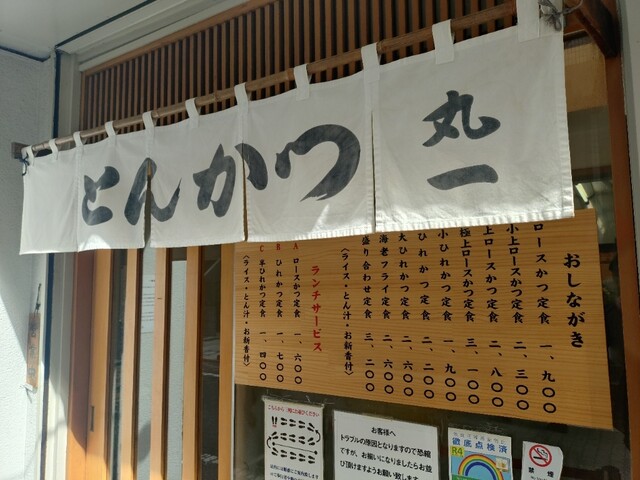 とんかつ
丸一
おしながき
ロースかつ定食 一、九〇〇
小上ロースかつ定食 二、三〇〇
上ロースかつ定食 二、八〇〇
極上ロースかつ定食 三、一〇〇
小ひれかつ定食 一、九〇〇
ひれかつ定食 二、二〇〇
大ひれかつ定食 二、六〇〇
海老フライ定食 二、六〇〇
盛り合わせ定食 三、二〇〇
（ライス・とん汁・お新香付）
ランチサービス
A ロースかつ定食 一、六〇〇
B ひれかつ定食 一、七〇〇
C 半ひれかつ定食 一、四〇〇
（ライス・とん汁・お新香付）
お客様へ
トラブルの原因となりますので恐縮
ですが、お揃いになりましたらお並
び頂けますようお願い致します。
徹底点検済
R4
禁煙